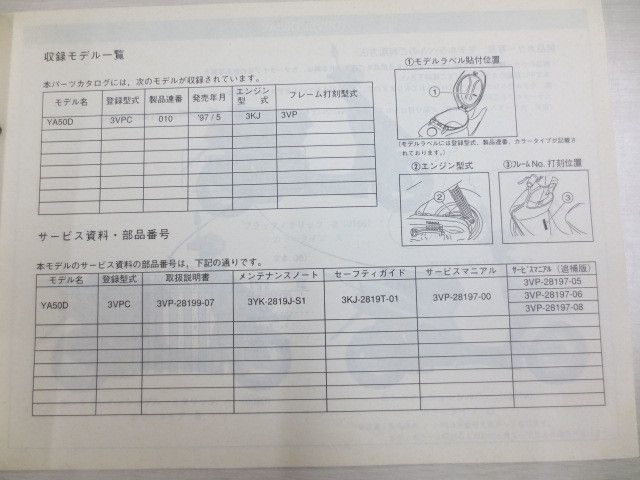 収録モデル一覧
本パーツカタログには、次のモデルが収録されています。
モデル名 登録型式 製品連番 発売年月 エンジン型式 フレーム打刻型式
YA50D 3VPC 010 '97 / 5 3KJ 3VP
①モデルラベル貼付位置
①
(モデルラベルには登録型式、製品連番、カラータイプが記載されております。)
②エンジン型式
②
③フレームNo. 打刻位置
③
サービス資料・部品番号
本モデルのサービス資料の部品番号は、下記の通りです。
モデル名 登録型式 取扱説明書 メンテナンスノート セーフティガイド サービスマニアル サービスマニアル (追補版)
YA50D 3VPC 3VP-28199-07 3YK-2819J-S1 3KJ-2819T-01 3VP-28197-00 3VP-28197-05
3VP-28197-06
3VP-28197-08